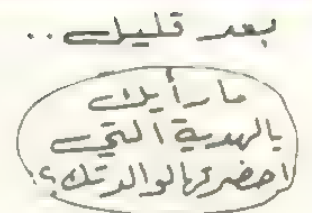 بعد قليل..
ما رأيك
بالهدية التي
احضرتها لوالدتك؟!